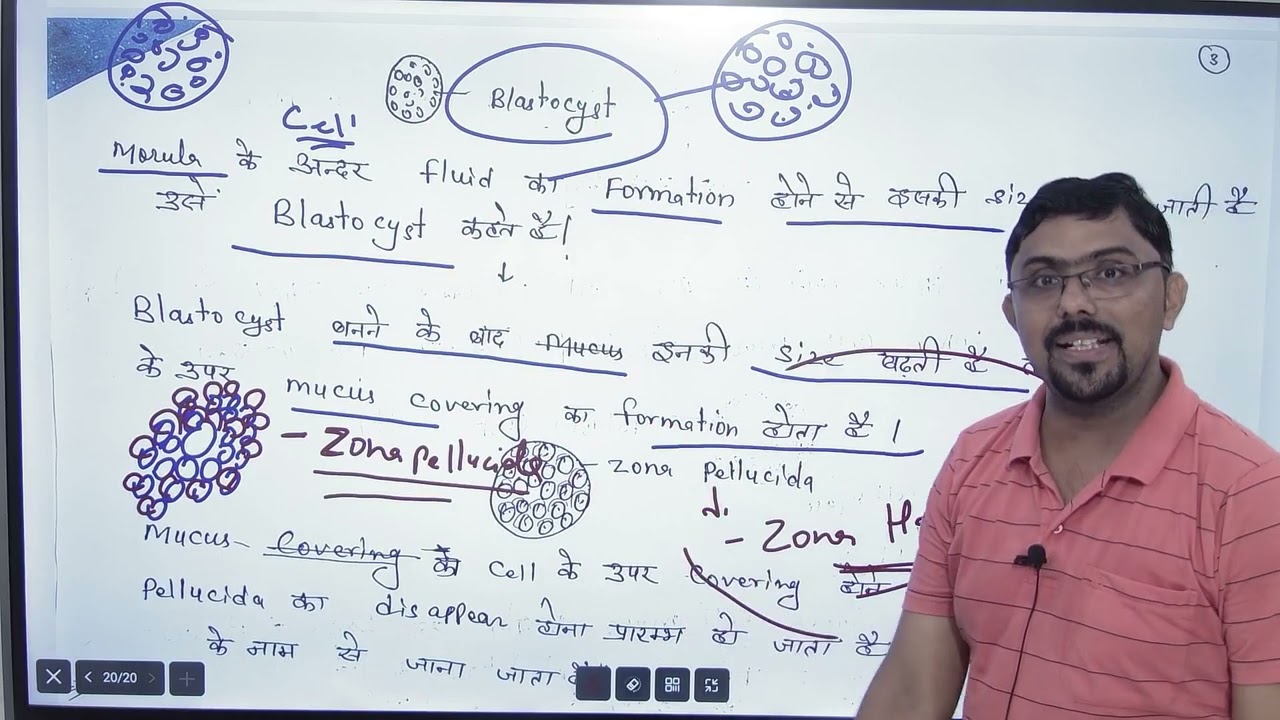 3
Blastocyst
Cell
Morula के अन्दर fluid का Formation होने से इसकी siz जाती है
उसे Blastocyst कहते है।
↓
Blastocyst बनने के बाद Mucus इनकी size बढ़ती है
के उपर mucus covering का formation होता है ।
- Zona pellucida
- zona pellucida
- Zona H
Mucus- Covering Cell के उपर covering होने
Pellucida का disappear होना प्रारम्भ हो जाता है
के नाम से जाना जाता है
20/20